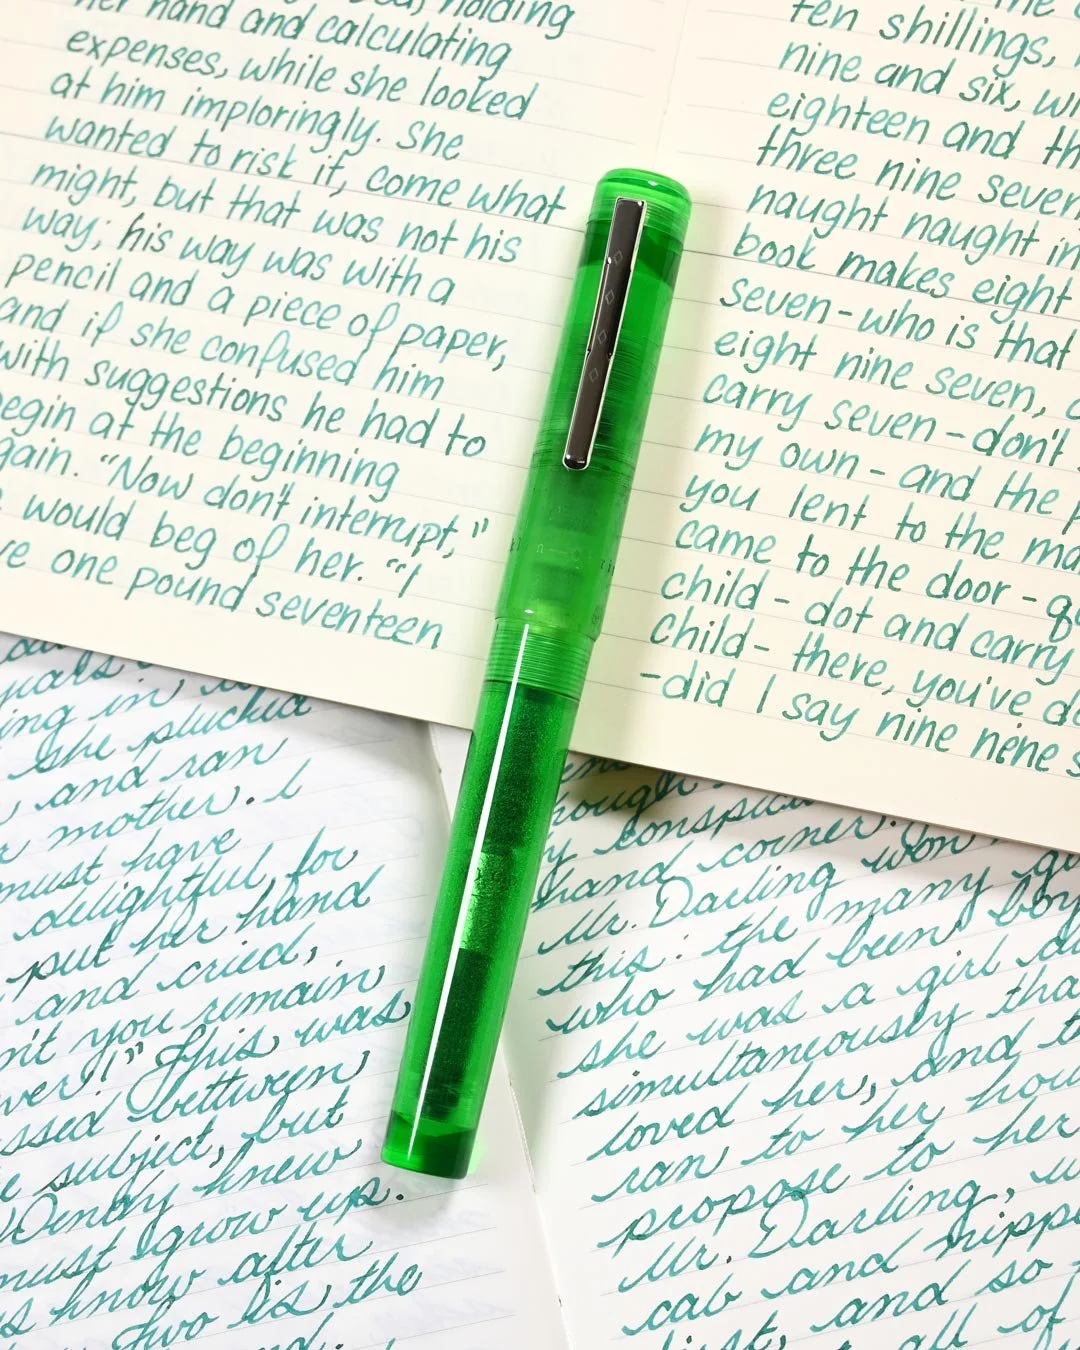 her hand and calculating
expenses, while she looked
at him imploringly. She
wanted to risk it, come what
might, but that was not his
way; his way was with a
pencil and a piece of paper,
and if she confused him
with suggestions he had to
begin at the beginning
again. "Now don't interrupt,"
would beg of her. "I
ve one pound seventeen
ten shillings,
nine and six, wi
eighteen and th
three nine seven
naught naught in
book makes eight
seven-who is that
eight nine seven,
carry seven-don't
my own-and the p
you lent to the ma
came to the door-q
child-dot and carry
child-there, you've d
-did I say nine nene s
years
ing in
she plucked
and ran
mother. I
must have
delightful for
put her hand
and cried,
n't you remain
ver!" This was
ssed between
e subject, but
Wendy knew
must grow up.
s know after
Two is the
hough
y conspic
hand corner.
Mr. Darling won
this: the many g
who had been boy
she was a girl di
simultaneously tha
loved her, and t
ran to her hou
propose to her
Mr. Darling, w
cab and nippe
first, and so
all of